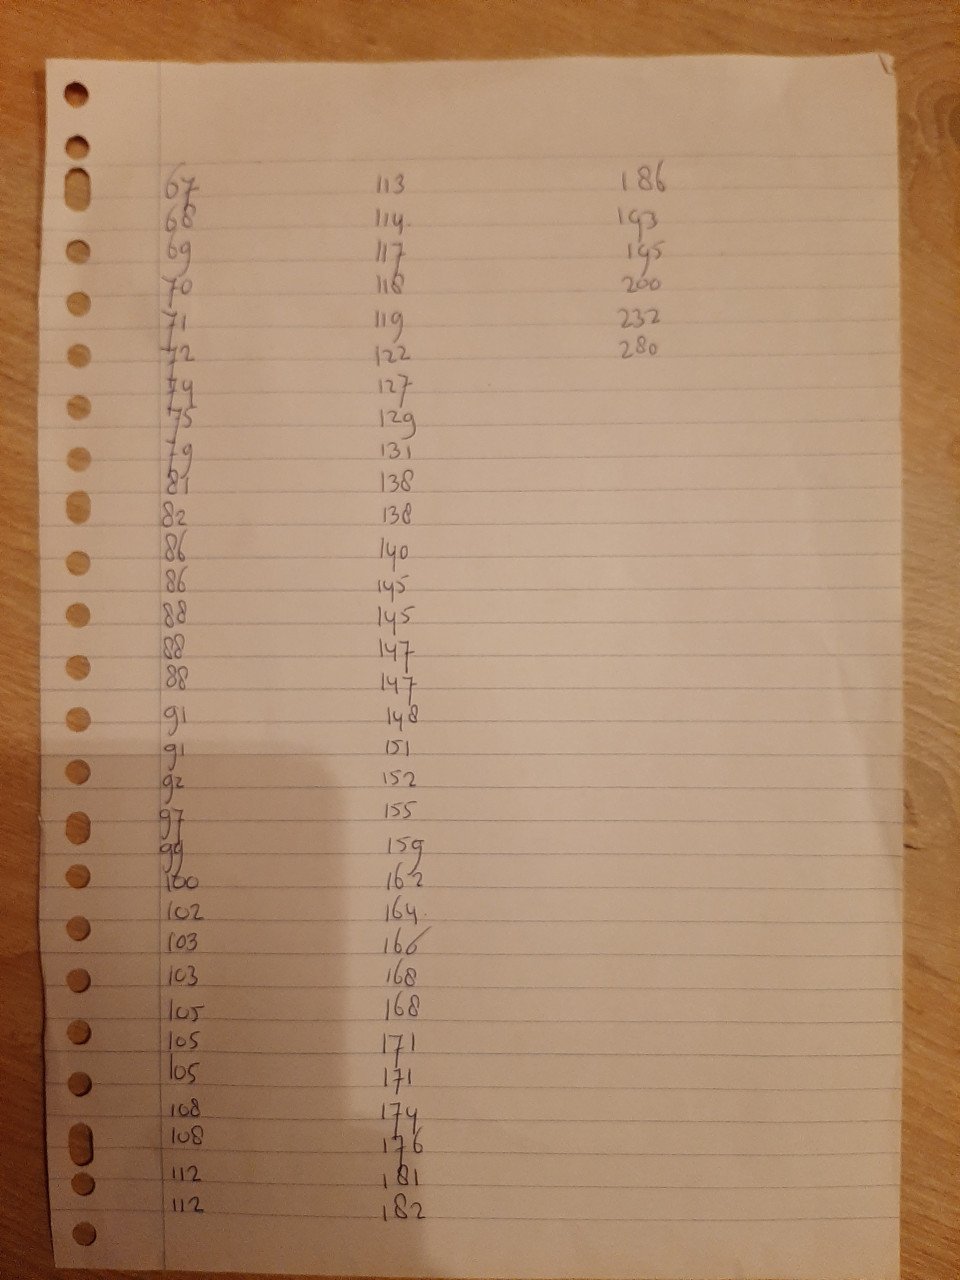 67 113 186
68 114 193
69 117 195
70 118 200
71 119 232
72 122 280
74 127
75 129
79 131
81 138
82 138
86 140
86 145
88 145
88 147
88 147
91 148
91 151
92 152
97 155
99 159
100 162
102 164
103 166
103 168
105 168
105 171
105 171
108 174
108 176
112 181
112 182